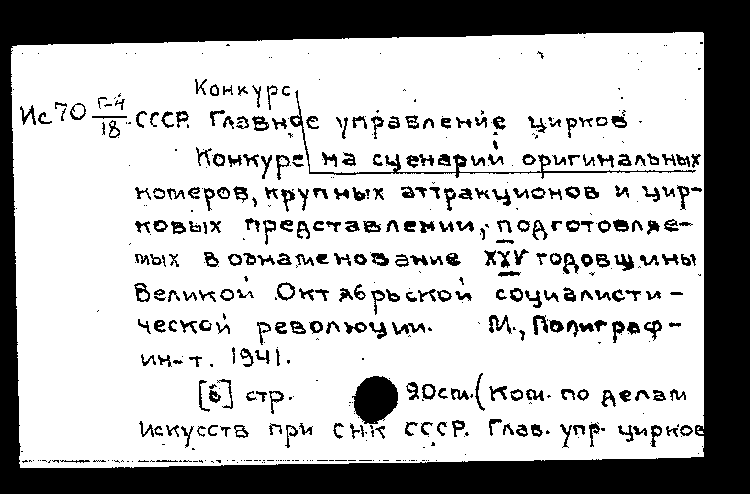 Конкурс
Ис70 Г-4/18 СССР. Главное управление цирков.
Конкурс на сценарий оригинальных
номеров, крупных аттракционов и цир-
ковых представлении, подготовляе-
мых в ознаменование XXV годовщины
Великой Октябрьской социалисти-
ческой революции. М., Полиграф-
ин-т. 1941.
[6] стр. 20см. (Ком. по делам
Искусств при СНК СССР. Глав. упр. цирков